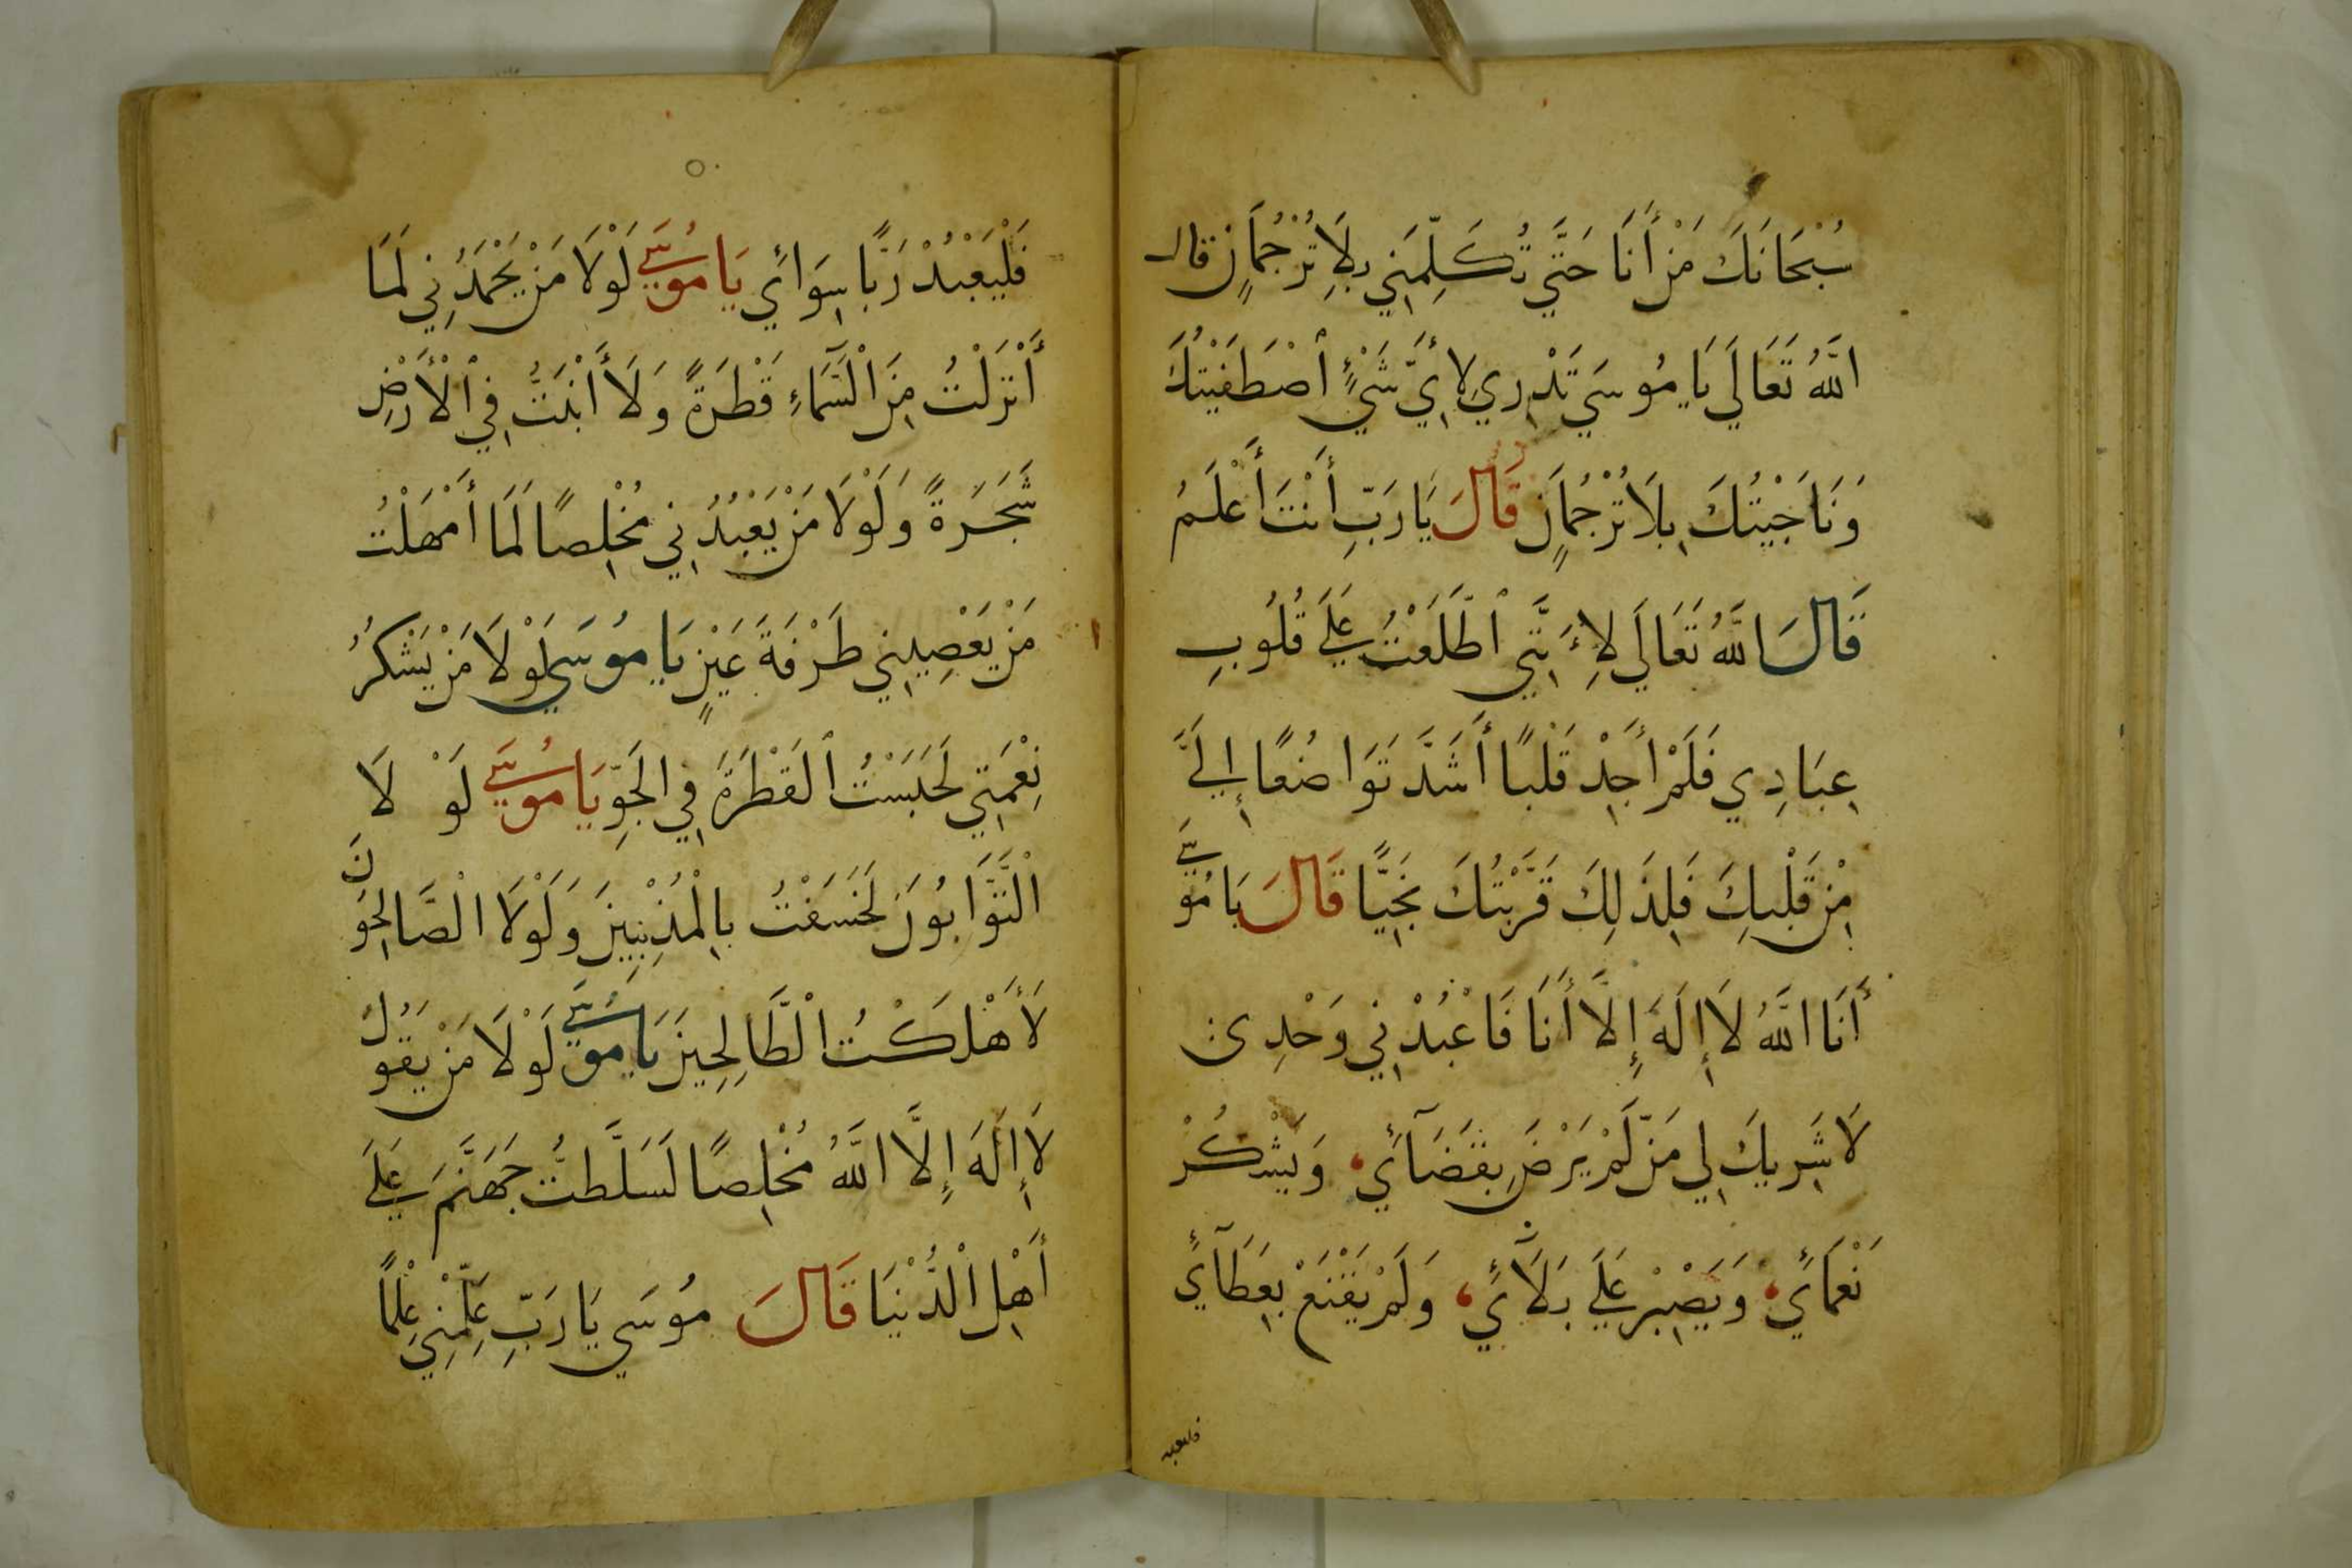 سُبْحَانَكَ مَنْ أَنَا حَتَّي تُكَلِّمَنِي بِلَا تُرْجُمَانٍ قال
اللَّهُ تَعَالَي يَا مُوسَي تَدْرِي لِأَيِّ شَيْءٍ ٱصْطَفَيْتُكَ
وَنَاجَيْتُكَ بِلَا تُرْجُمَانٍ قَالَ يَا رَبِّ أَنْتَ أَعْلَمُ
قَالَ اللَّهُ تَعَالَي لِأَنَّنِي ٱطَّلَعْتُ عَلَي قُلُوبِ
عِبَادِي فَلَمْ أَجِدْ قَلْبًا أَشَدَّ تَوَاضُعًا إِلَيَّ
مِنْ قَلْبِكَ فَلِذَلِكَ قَرَّبْتُكَ نَجِيًّا قَالَ يَا مُوسَي
أَنَا اللَّهُ لَا إِلَهَ إِلَّا أَنَا فَاعْبُدْنِي وَحْدِي
لَا شَرِيكَ لِي مَنْ لَّمْ يَرْضَ بِقَضَآئِي وَيَشْكُرْ
نَعْمَائِي وَيَصْبِرْ عَلَي بَلَائِي وَلَمْ يَقْنَعْ بِعَطَآئِي
فليعبد
فَلْيَعْبُدْ رَبًّا سِوَائِي يَا مُوسَي لَوْلَا مَنْ يَحْمَدُنِي لَمَا
أَنْزَلْتُ مِنَ الْسَّمَآءِ قَطْرَةً وَلَا أَنْبَتُّ فِي ٱلْأَرْضِ
شَجَرَةً وَلَوْلَا مَنْ يَعْبُدُنِي مُخْلِصًا لَمَا أَمْهَلْتُ
مَنْ يَعْصِينِي طَرْفَةَ عَيْنٍ يَا مُوسَي لَوْلَا مَنْ يَشْكُرُ
نِعْمَتِي لَحَبَسْتُ ٱلقَطْرَةَ فِي الجَوِّ يَا مُوسَي لَوْ لَا
الْتَّوَّابُونَ لَخَسَفْتُ بِالْمُذْنِبِينَ وَلَوْلَا الْصَّالِحُونَ
لَأَهْلَكْتُ الْطَّالِحِينَ يَا مُوسَي لَوْلَا مَنْ يَقُولُ
لَا إِلَهَ إِلَّا اللَّهُ مُخْلِصًا لَسَلَّطتُّ جَهَنَّمَ عَلَي
أَهْلِ الْدُّنْيَا قَالَ مُوسَي يَا رَبِّ عَلِّمْنِي عِلْمًا